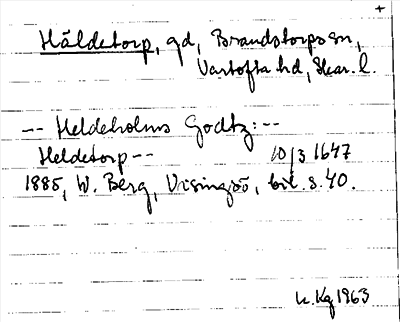 +
Häldetorp, gd, Brandstorps sn,
Vartofta hd, Skar. l.
-- Heldeholms Godtz:--
Heldetorp -- 10/3 1647
1885, W. Berg, Visingsö, bil. s. 40.
L. Kg 1963